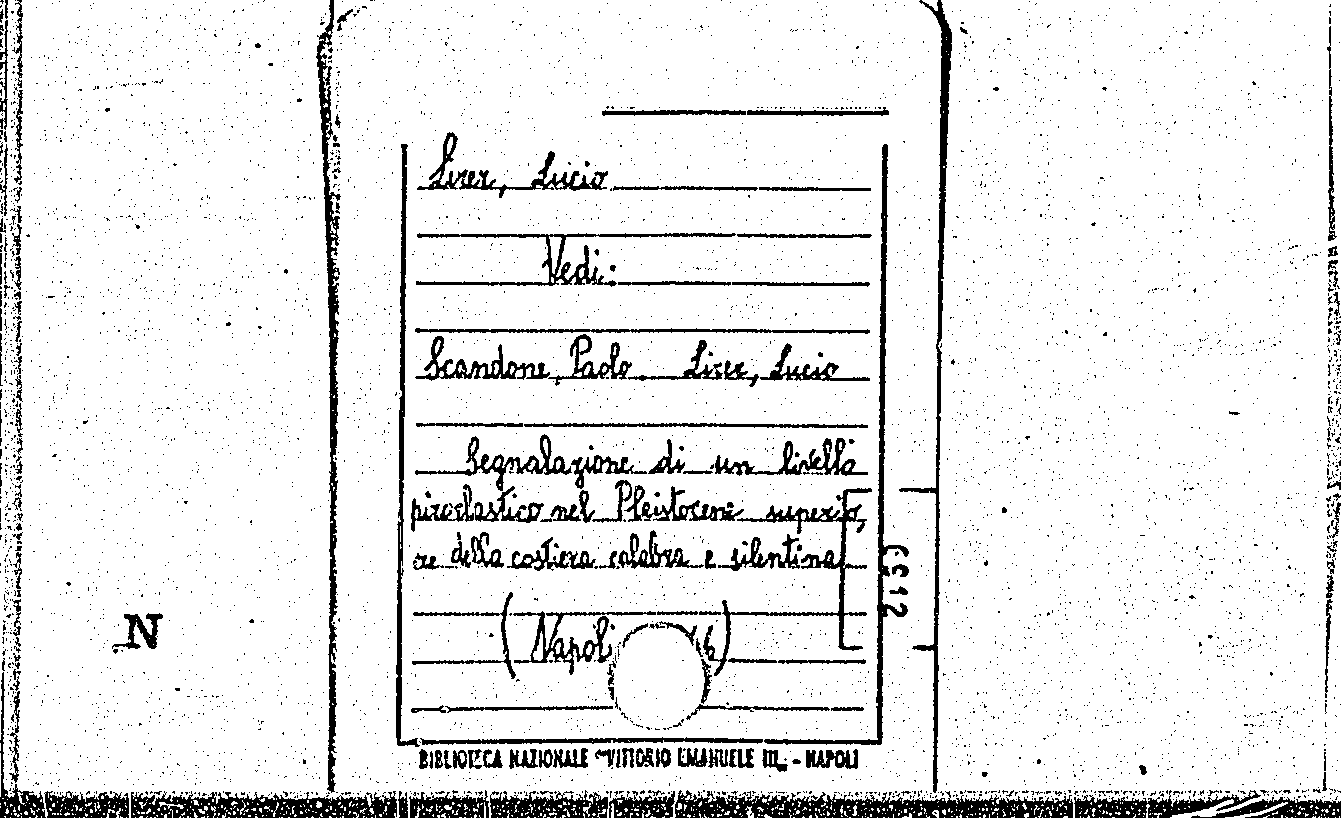 Lirer, Lucio
Vedi:
Scandone, Paolo. Lirer, Lucio
Segnalazione di un livello
piroclastico nel Pleistocene superio,
re della costiera calabra e silentina
(Napoli 6)
N
BIBLIOTECA NAZIONALE "VITTORIO EMANUELE III" - NAPOLI